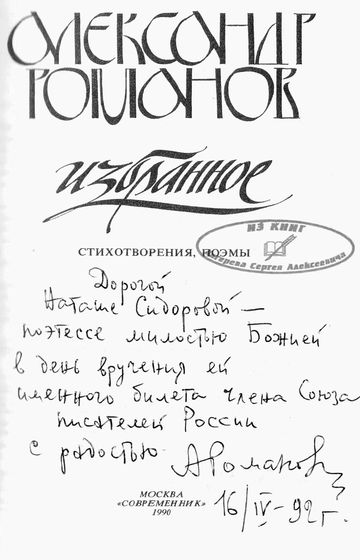 АЛЕКСАНДР
РОМАНОВ
избранное
СТИХОТВОРЕНИЯ, ПОЭМЫ
ИЗ КНИГ
Сергея Алексеевича
Дорогой
Наташе Сидоровой –
поэтессе милостью Божией
в день вручения ей
именного билета члена Союза
писателей России
с радостью. АРоманов
МОСКВА
«СОВРЕМЕННИК»
1990
16/IV-92 г.